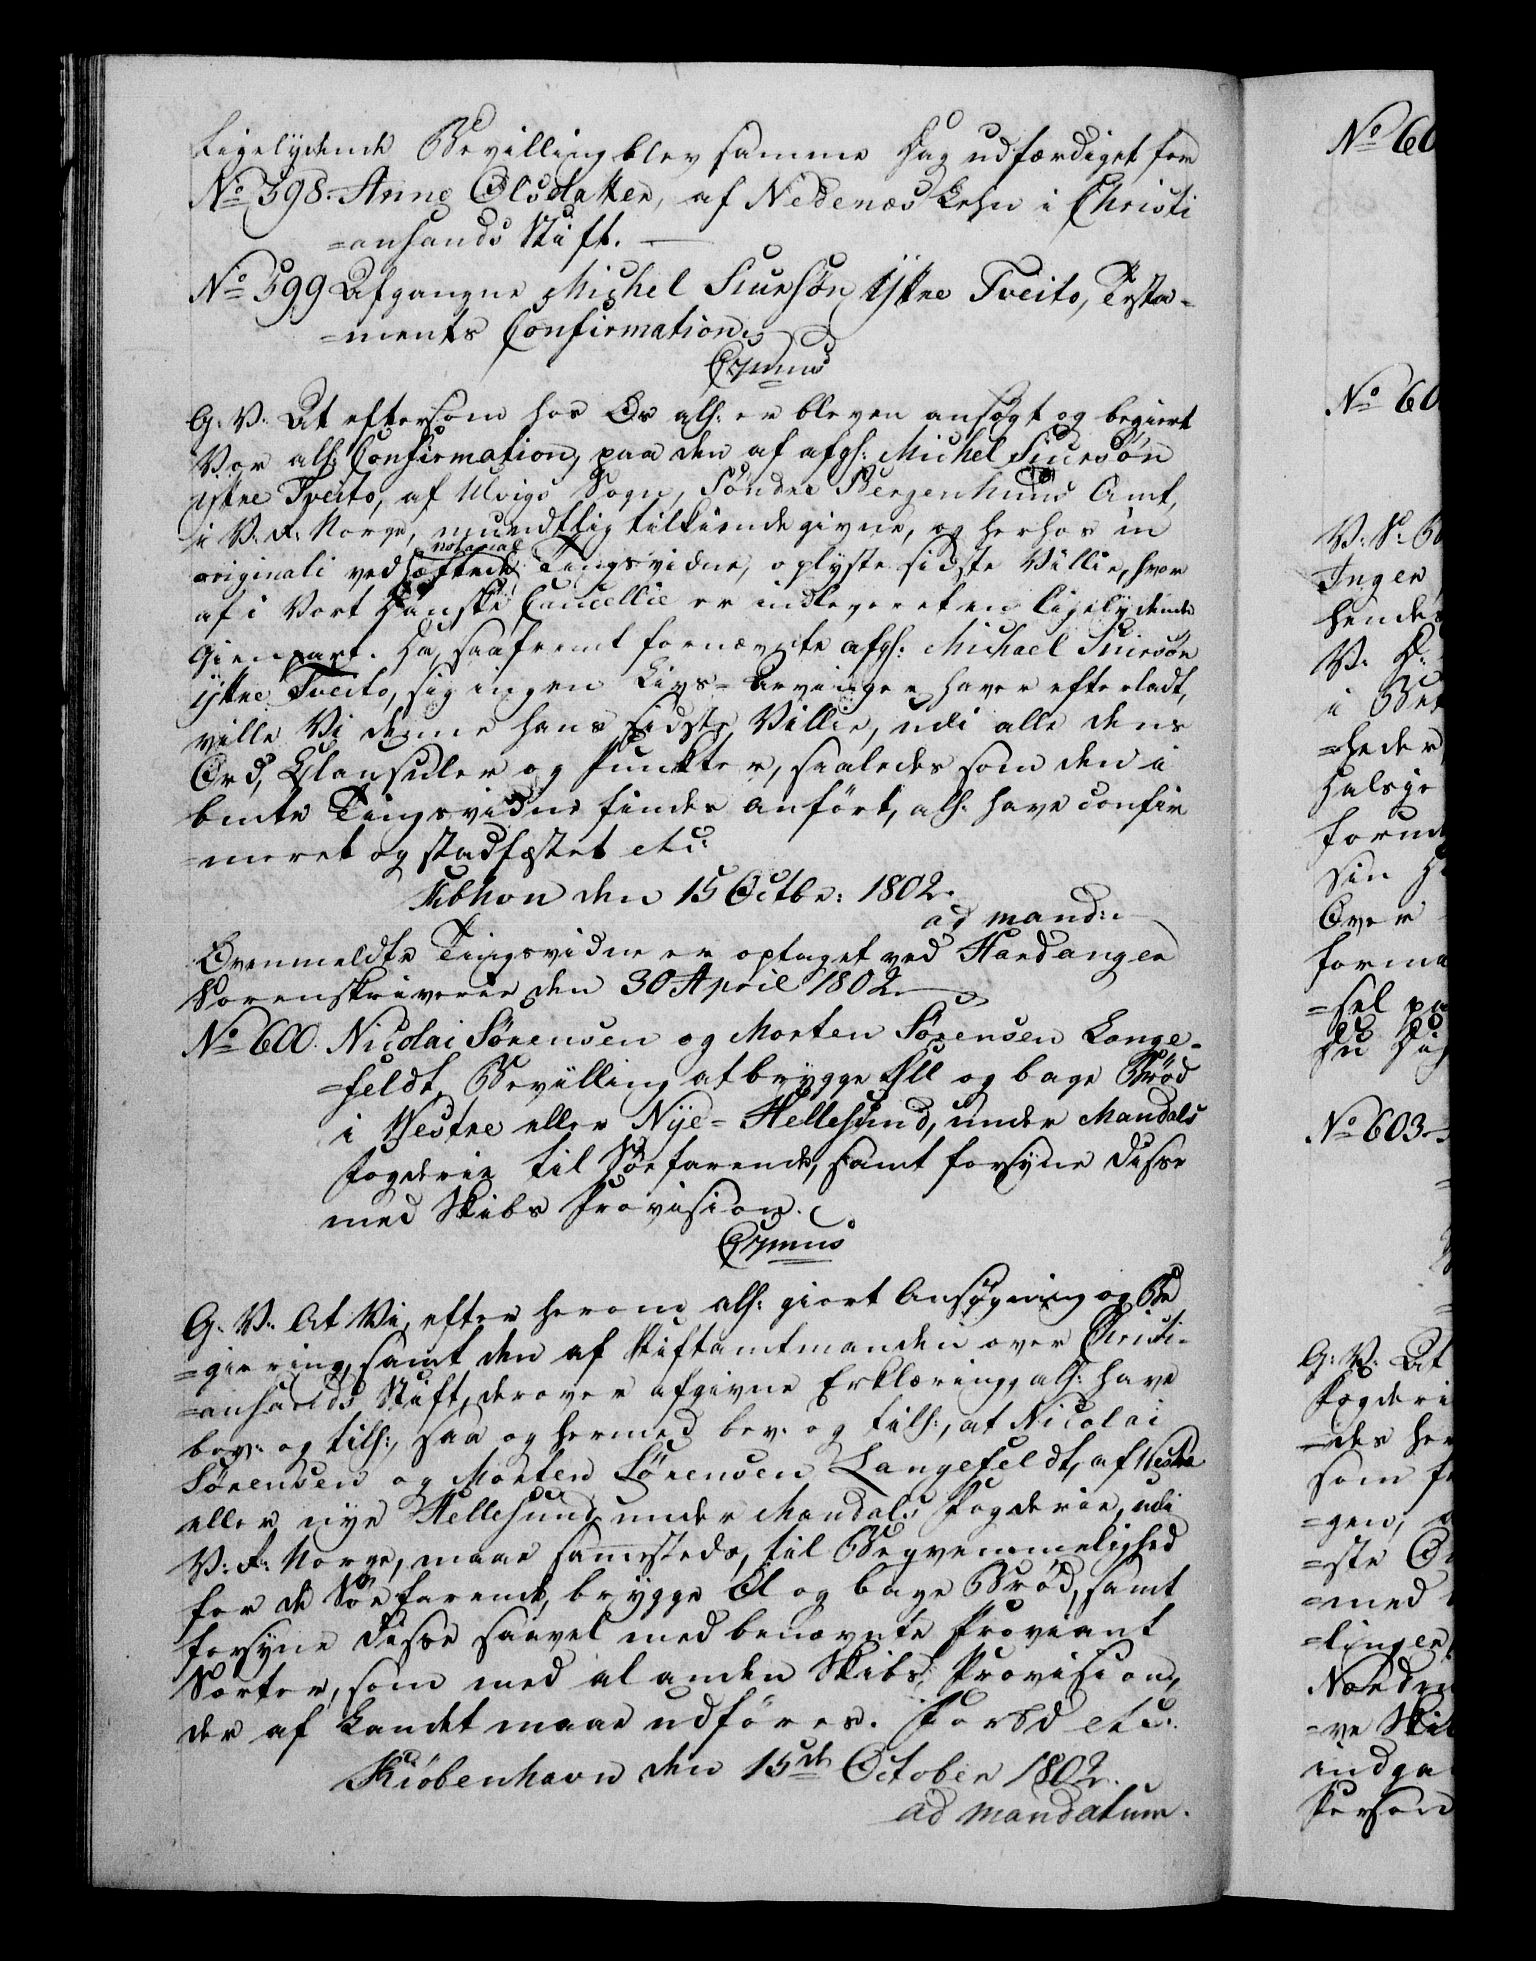 Ligelydende Bevilling blev samme Dag udfærdiget for
No 598. Anne Olsdatter, af Nedenæs Lehn i Christi
=ansands Stift.
No 599 Afgangne Michel Siursøn Yttre Tveito, Testa-
=ments Confirmation.
G: V: At eftersom hos Os allr: er bleven ansøgt og begiert
Vor allr: Confirmation, paa den af afg: Michel Siursøn
yttre Tveito, af Ulvigs Sogn, Søndre Bergenhuus Amt,
i V: R: Norge, mundtlig tilkiendegivne, og herhos in
notarial
originali vedhæftede Tingsvidne, oplyste sidste Villie, hvor
af i Vort Danske Cancellie er indleveret en ligelydende
Gienpart. Da, saafremt fornævnte afg: Michael Siursøn
yttre Tveito, sig ingen Livs-Arvinger haver efterladt,
ville Vi denne hans sidste Villie, udi alle dens
Ord, Clausuler og Puncter, saaledes som den i
bemte Tingsvidne findes anført, allr: have confir
=meret og stadfæstet etc:
Kbhvn den 15 Octbr: 1802.
ad mand:
Ovenmeldte Tingsvidne er optaget ved Hardanger
Sorenskriverie den 30 April 1802.
No 600. Nicolai Sørensen og Morten Sørensen Lange-
=feldt, Bevilling at brygge Øll og bage Brød
i Vestre eller Nye-Hellesund, under Mandals
Fogderie til Søefarende, samt forsyne disse
med Skibs Provision.
G: V: At Vi, efter herom allr: giort Ansøgning og Be
=giering, samt den af Stiftamtmanden over Christi-
=ansands Stift, derover afgivne Erklæring, allr: have
bev: og till:, saa og hermed bev: og till:, at Nicolai
Sørensen og Morten Sørensen Langefeldt, af Vestre
eller nye Hellesund under Mandals Fogderie, udi
V: R: Norge, maae sammesteds, til Beqvemmelighed
for de Søefarende, brygge Øl og bage Brød, samt
forsyne disse saavel med benævnte Proviant
Sorter, som med al anden Skibs Provision,
der af Landet maae udføres. Forbd etc:
Kiøbenhavn den 15de October 1802.
ad mandatum.
No 60
No 60
V: S:
Inger
hendes
V: D:
i Bet
=heder
halvge
forme
sin
Over
forma
=sel pa
No 603.
G: V: At
Fogderi
=des her
som f
=gen,
=ste
=med
=linger
Norden
=ve Ski
indga
Person